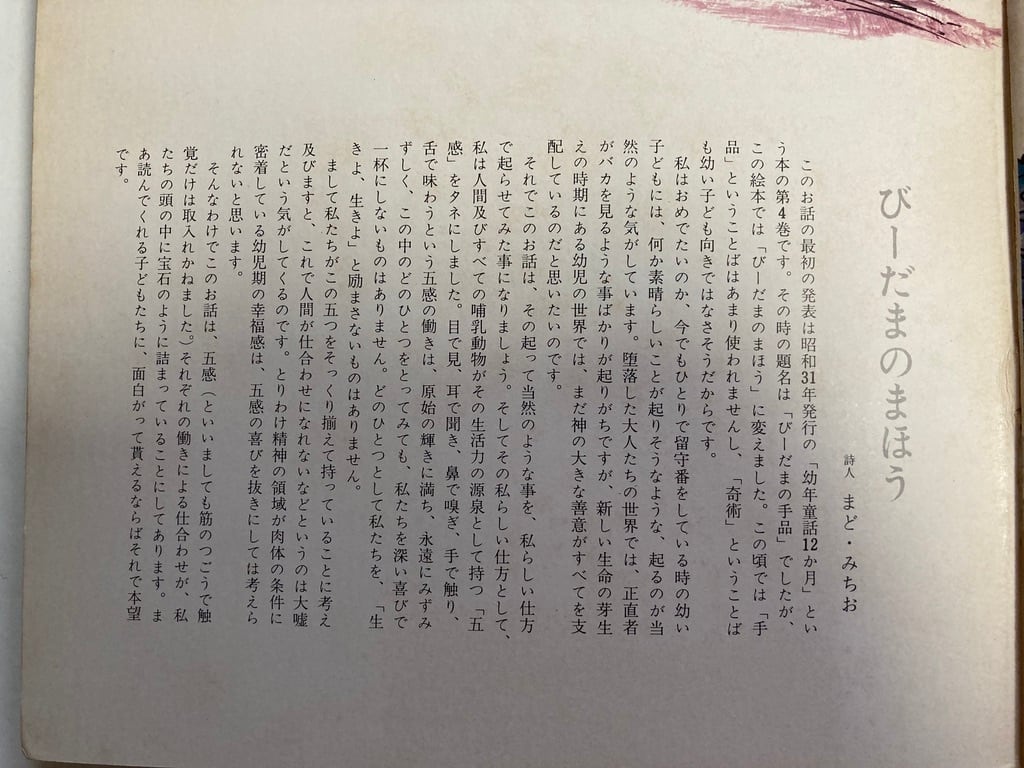 びーだまのまほう
詩人 まど・みちお
このお話の最初の発表は昭和31年発行の「幼年童話12か月」とい
う本の第4巻です。その時の題名は「びーだまの手品」でしたが、
この絵本では「びーだまのまほう」に変えました。この頃では「手
品」ということばはあまり使われませんし、「奇術」ということば
も幼い子ども向きではなさそうだからです。
私はおめでたいのか、今でもひとりで留守番をしている時の幼い
子どもには、何か素晴らしいことが起りそうなような、起るのが当
然のような気がしています。堕落した大人たちの世界では、正直者
がバカを見るような事ばかりが起りがちですが、新しい生命の芽生
えの時期にある幼児の世界では、まだ神の大きな善意がすべてを支
配しているのだと思いたいのです。
それでこのお話は、その起って当然のような事を、私らしい仕方
で起らせてみた事になりましょう。そしてその私らしい仕方として、
私は人間及びすべての哺乳動物がその生活力の源泉として持つ「五
感」をタネにしました。目で見、耳で聞き、鼻で嗅ぎ、手で触り、
舌で味わうという五感の働きは、原始の輝きに満ち、永遠にみずみ
ずしく、この中のどのひとつをとってみても、私たちを深い喜びで
一杯にしないものはありません。どのひとつとして私たちを、「生
きよ、生きよ」と励まさないものはありません。
まして私たちがこの五つをそっくり揃えて持っていることに考え
及びますと、これで人間が仕合わせになれないなどというのは大嘘
だという気がしてくるのです。とりわけ精神の領域が肉体の条件に
密着している幼児期の幸福感は、五感の喜びを抜きにしては考えら
れないと思います。
そんなわけでこのお話は、五感（といいましても筋のつごうで触
覚だけは取入れかねました。）それぞれの働きによる仕合わせが、私
たちの頭の中に宝石のように詰まっていることにしてあります。ま
あ読んでくれる子どもたちに、面白がって貰えるならばそれで本望
です。